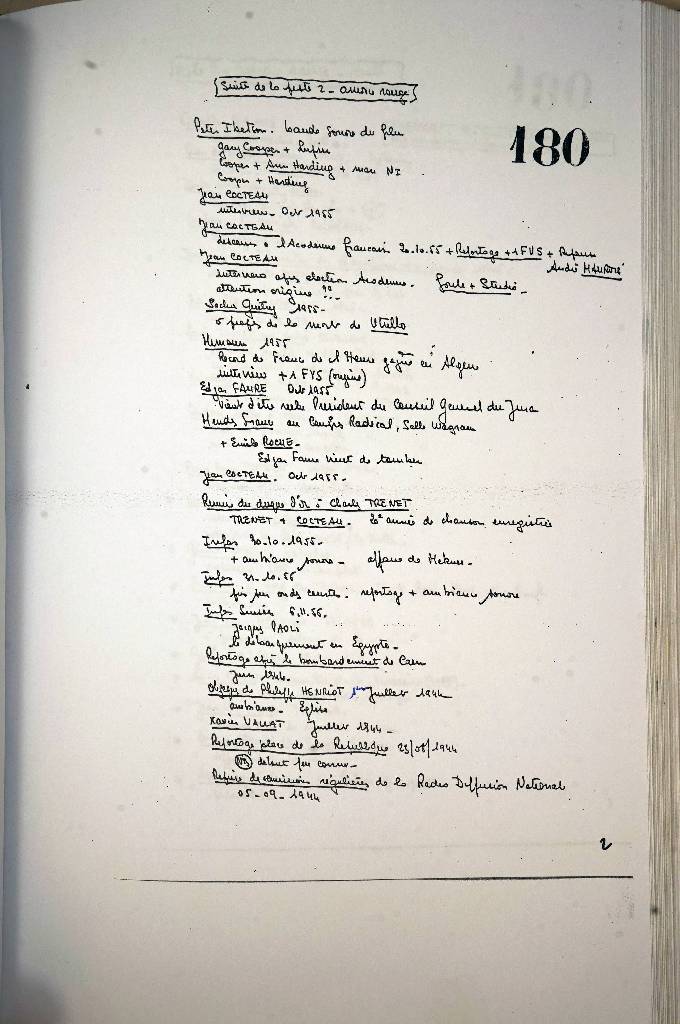 Suite de la piste 2 - amorce rouge
180
Peter Ibetson. bande sonore du film
Gary Cooper + Lupin
Cooper + Ann Harding + man NI
Cooper + Harding
Jean COCTEAU
interview - Oct 1955
Jean COCTEAU
discours à l'Académie française 20.10.55 + Reportage + 1 FVS + Réponse
André MAUROIS
Jean COCTEAU
interview après élection Académie. Foule + Studio -
attention origine ?!
Sacha Guitry 1955 -
à propos de la mort de Utrillo
1955
Record de France de l'Heure gagné en Alger
interview + 1 FVS (origine)
Edgar FAURE Oct 1955
Vient d'être réélu Président du Conseil Général du Jura
Mendès France au Congrès Radical, Salle Wagram
+ Emile ROCHE -
Edgar Faure vient de tomber
Jean COCTEAU. Oct 1955 -
Remise du disque d'or à Charles TRENET
TRENET + COCTEAU. 20e année de chanson enregistrée
Infos 30-10-1955 -
+ ambiance sonore - affaire de
Infos 31-10-56
pris sur ondes courtes : reportage + ambiance sonore
Infos Suisse 6.11.56.
Jacques PAOLI
le débarquement en Egypte -
Reportage après le bombardement de Caen
Juin 1944.
Obsèques de Philippe HENRIOT 1er Juillet 1944
ambiance - Eglise
Xavier VALLAT Juillet 1944 -
Reportage place de la République 25/08/1944
NB début peu connu -
Reprise des émissions régulières de la Radio Diffusion National
05-09-1944
2